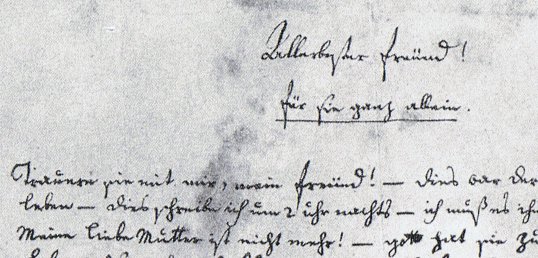 Allerbester freünd!
für sie ganz allein.
Trauern sie mit mir, mein freünd! — dies war der
leben — dies schreibe ich um 2 uhr nachts — ich muß es ihn
Meine liebe Mutter ist nicht mehr! — gott hat sie zu